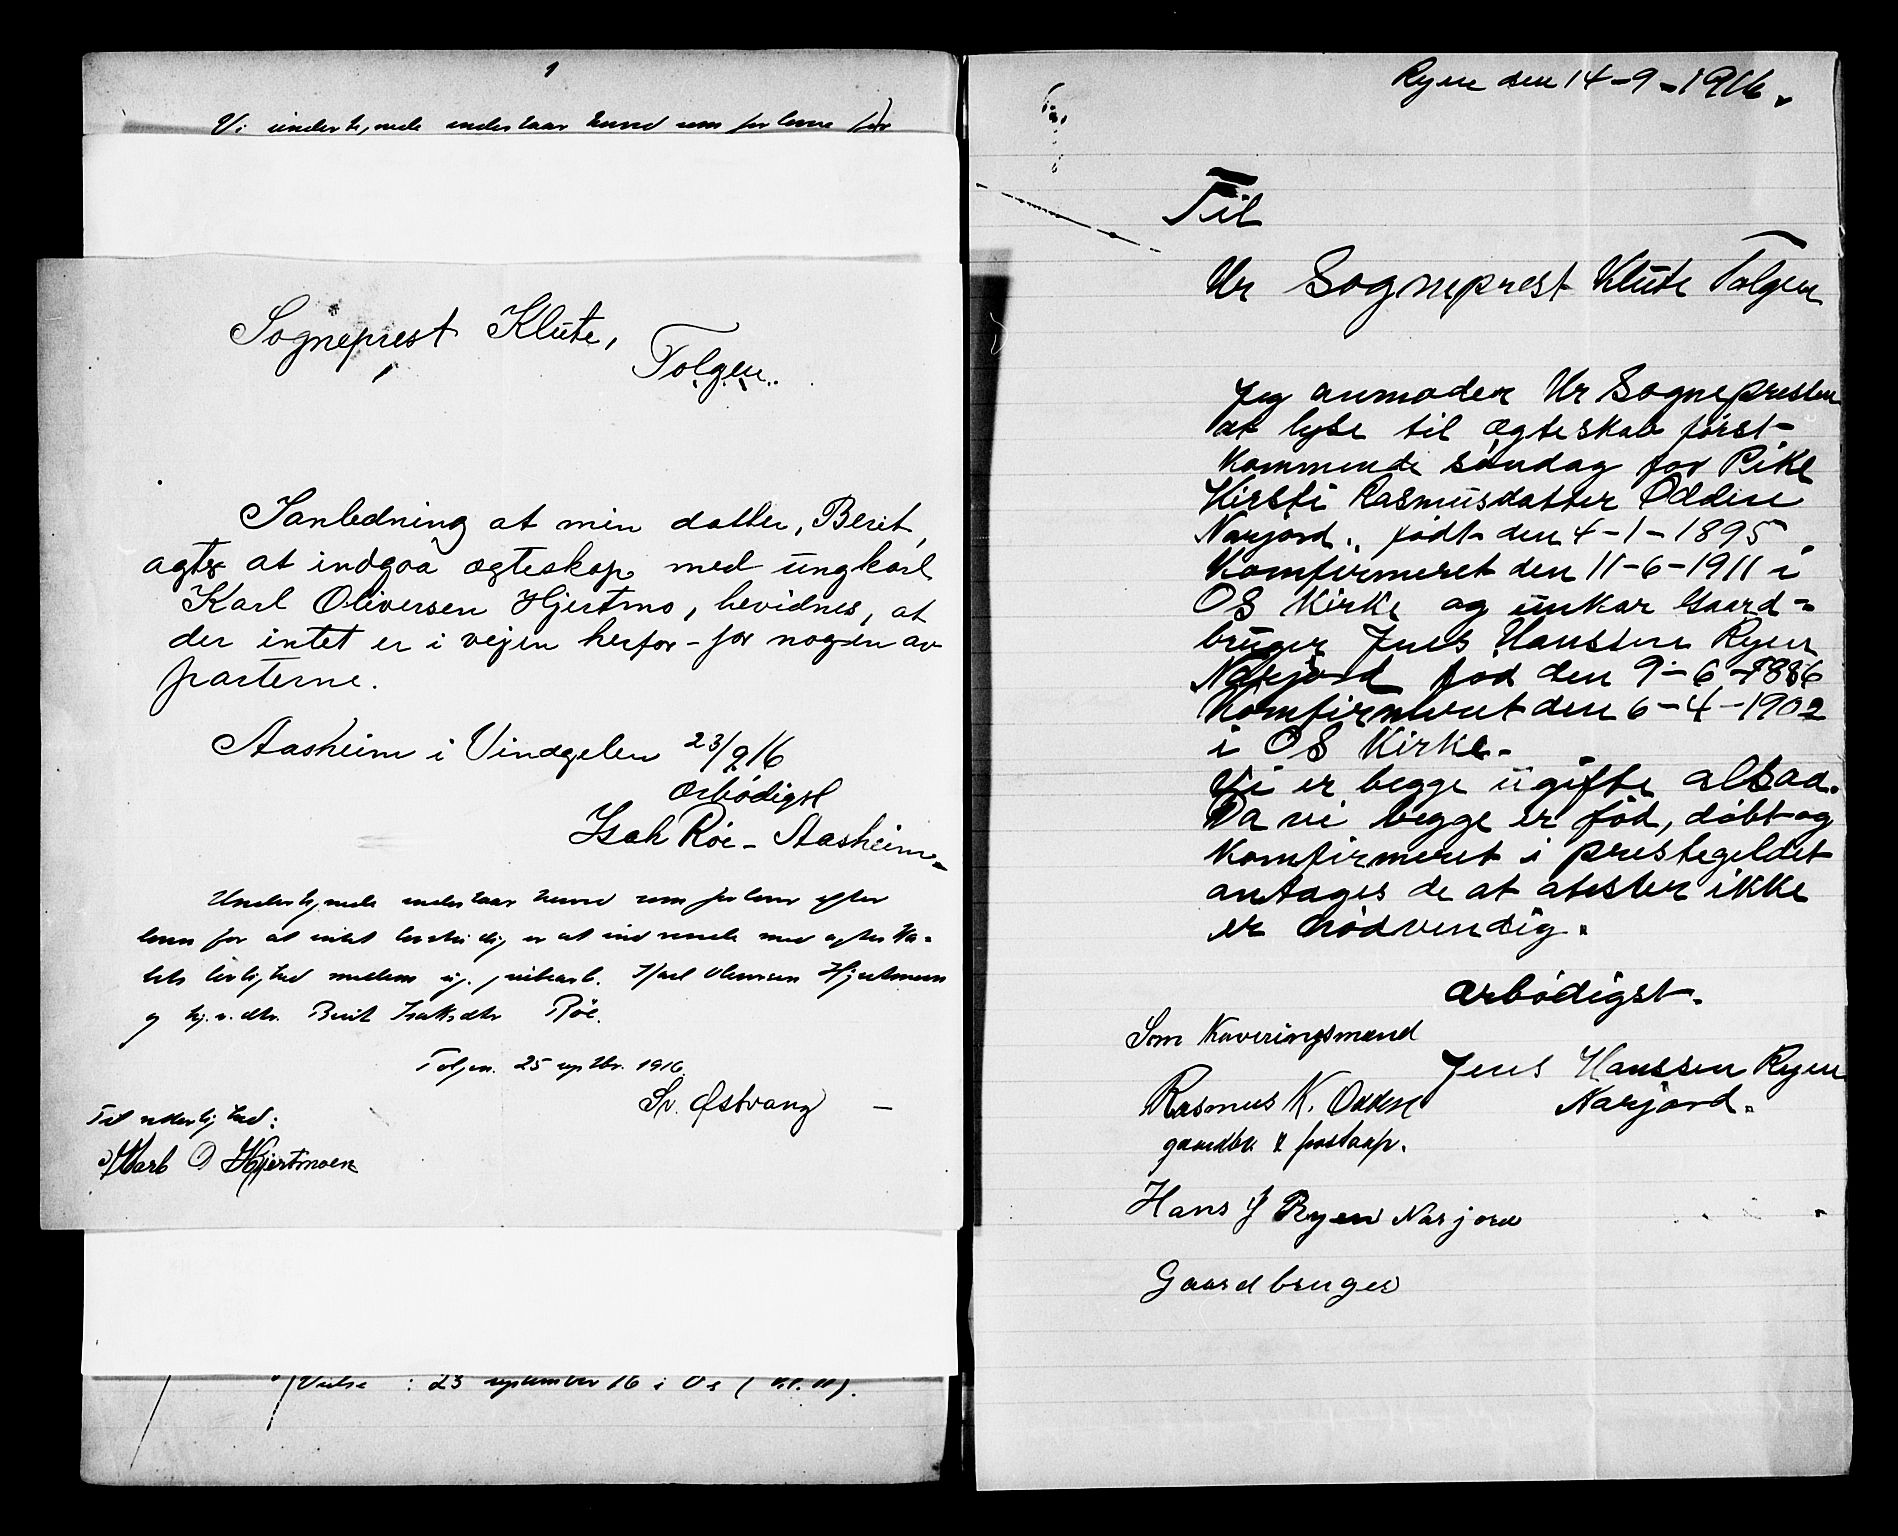 1
Vi undertegnede indestaar herved som forlovere for
Sogneprest Klüte,
Tolgen.
Ianledning at min datter, Berit,
agter at indgaa ægteskap med ungkarl
Karl Oliversen Hjertmo, bevidnes, at
der intet er i vejen herfor - for nogen av
parterne.
Aasheim i Vindgelen 23/9 16
Ærbødigst
Isak Röe - Aasheim.
Undertegnede indestaar herved som forlover efter
loven for at intet er at med
mellem sig. Karl Oliversen Hjertmoen
og Berit Isaksdtr Röe.
Tolgen. 25 septbr. 1916.
Sv. Østvang
Til vitterlighed:
Karl O Hjertmoen
Vielse : 23 september 16 i Os ( kl. 11).
Ryen den 14-9-1916.
Til
Hr Sogneprest Klüte Tolgen
Jeg anmoder Hr Sognepresten
at lyse til ægteskab först-
kommende söndag for Pike
Kirsti Rasmusdatter Odden
Narjord., födt den 4-1-1895
Komfirmeret den 11-6-1911 i
OS Kirke og ünkar Gaard-
brüger Jens Hanssen Ryen
Narjord föd den 9-6-1886
Komfirmeret den 6-4-1902
i OS Kirke.
Vi er begge ügifte altsaa.
Da vi begge er föd, döbt og
Komfirmeret i prestegeldet
antages de at atester ikke
er nödvendig.
ærbödigst.
Som Kaveringsmænd
Jens Hanssen Ryen
Narjord.
Rasmus K. Odden
gaardbr. & postaapr.
Hans J Ryen Narjord
Gaardbruger